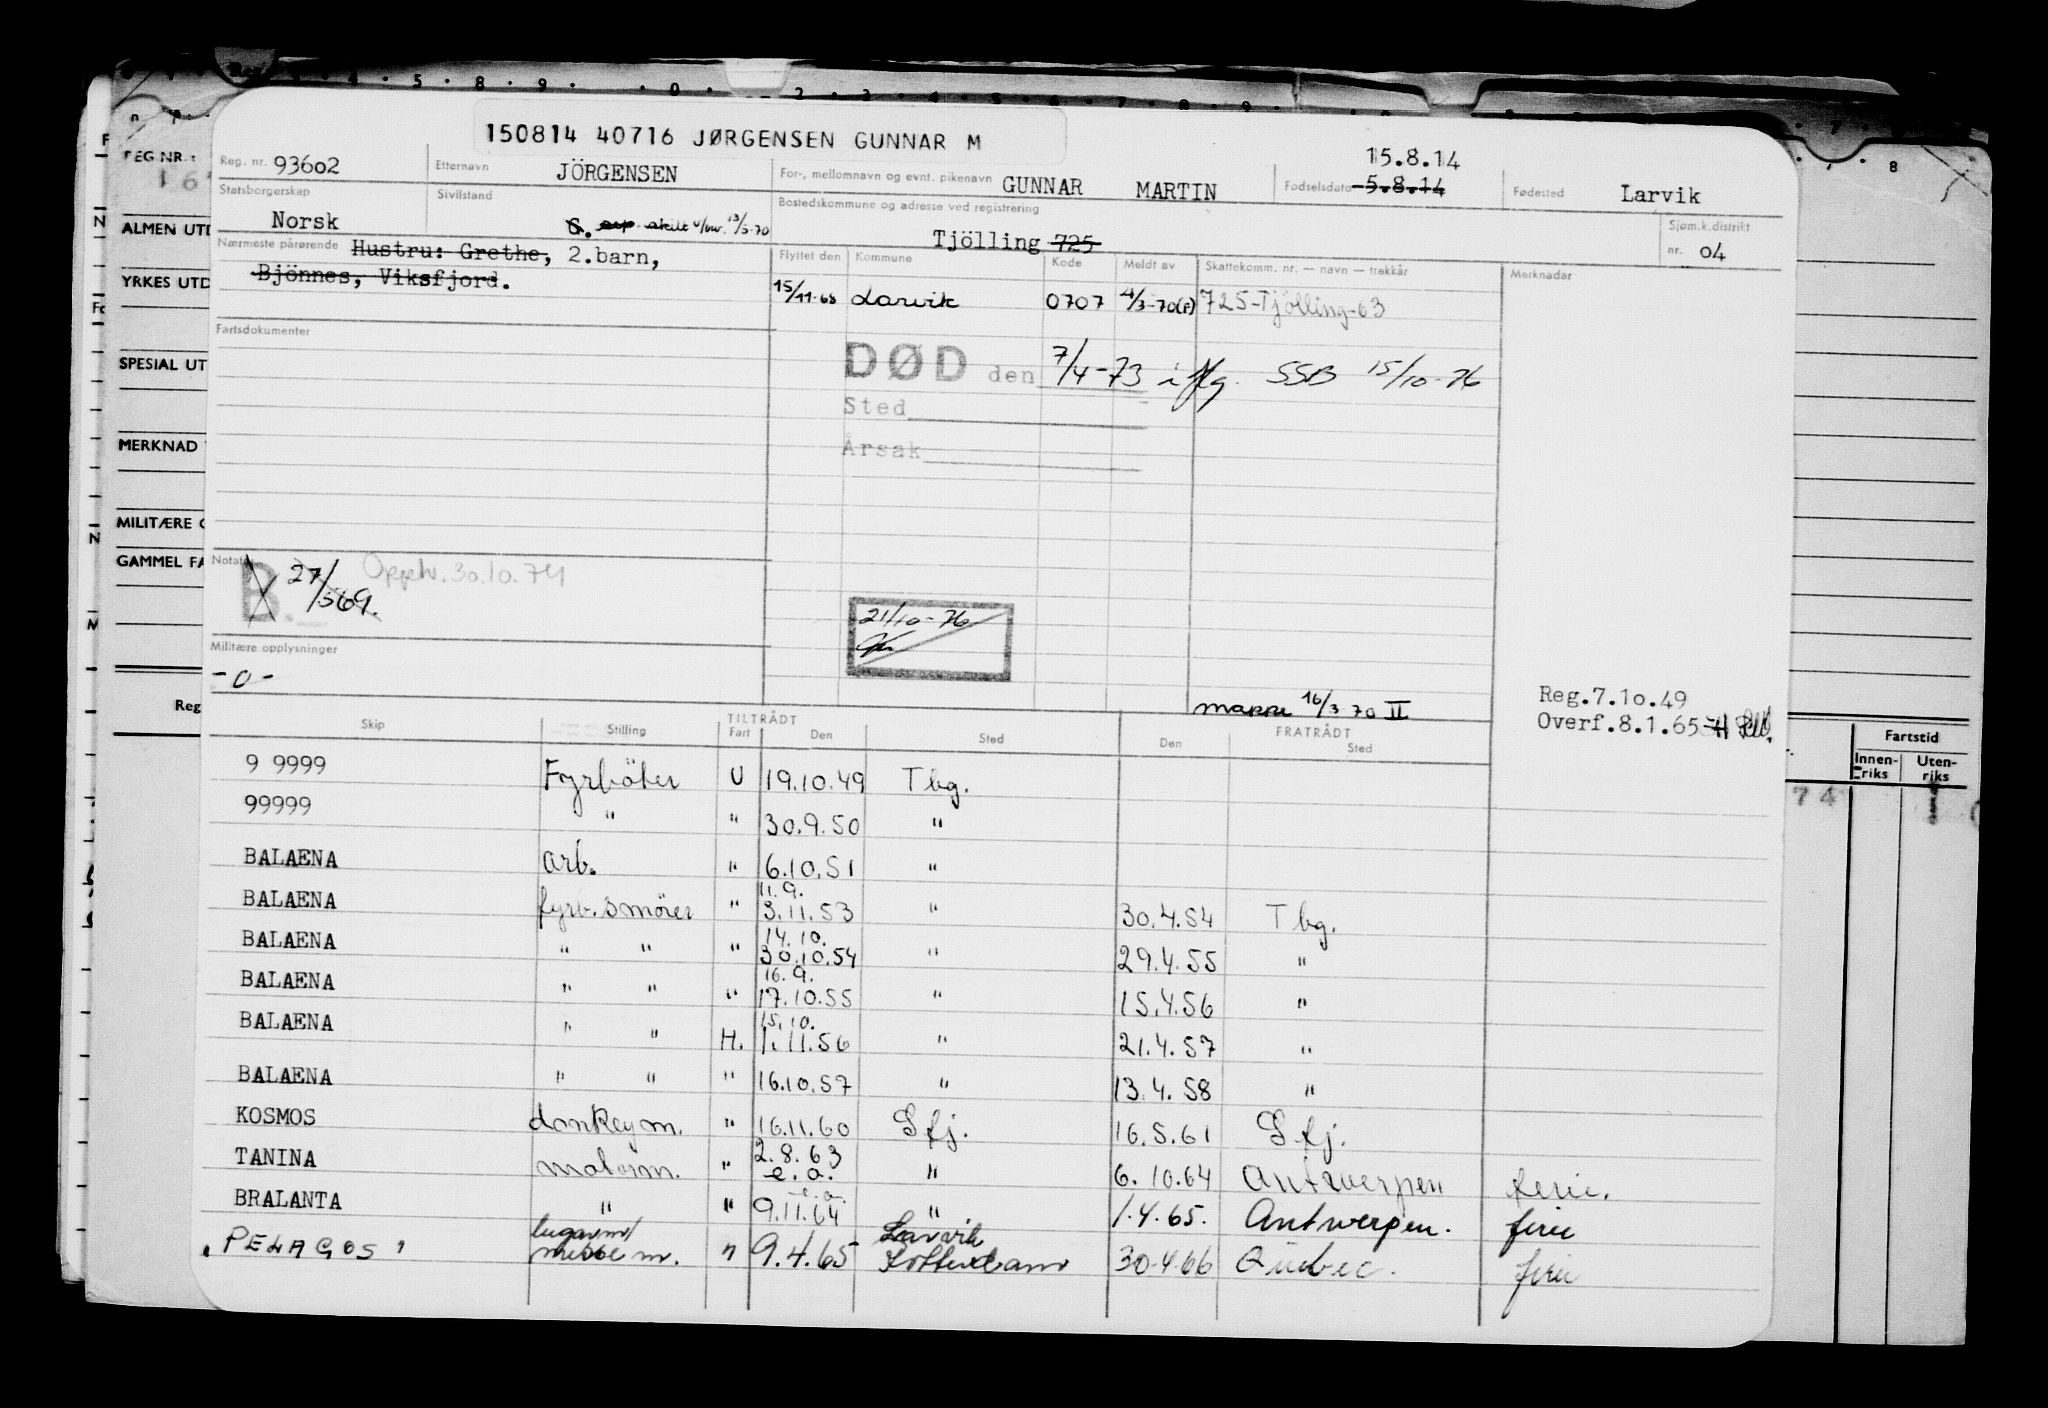 150814 40716 JØRGENSEN GUNNAR M
Reg. nr. 93602 Etternavn JÖRGENSEN For-, mellomnavn og evnt. pikenavn GUNNAR MARTIN Fødselsdato 15.8.14 5.8.14 Fødested Larvik
Statsborgerskap Norsk Sivilstand S. skilt 13/3-70 Bostedskommune og adresse ved registrering Tjölling 725 Sjøm.k.distrikt nr. 04
Nærmeste pårørende Hustru: Grethe, 2.barn,
Bjönnes, Viksfjord.
Flyttet den Kommune Kode Meldt av Skattekomm. nr. — navn — trekkår Merknader
15/11-65 Larvik 0707 4/3-70(F) 725-Tjölling-63
Fartsdokumenter
DØD den 7/4-73 i flg. SSB 15/10-76
Sted
Årsak
REG.NR.:
ALMEN UTD
YRKES UTD
SPESIAL UT
MERKNAD
MILITÆRE
GAMMEL FA
Notat B. 27/569. Opph. 30.10.74
21/10-76
Militære opplysninger
-0-
mappe 16/3 70 II
Reg.7.10.49
Overf.8.1.65
Skip Stilling TILTRÅDT Fart Den Sted FRATRÅDT Den Sted
Fartstid
Innenriks Utenriks
74
9 9999 Fyrböter U 19.10.49 Tbg.
99999 " " 30.9.50 "
BALAENA arb. " 6.10.51 "
BALAENA fyrb. smörer " 11.9. 3.11.53 " 30.4.54 Tbg.
BALAENA " " " 14.10. 30.10.54 " 29.4.55 "
BALAENA " " " 16.9. 17.10.55 " 15.4.56 "
BALAENA " " H. 15.10. 1.11.56 " 21.4.57 "
BALAENA " " " 16.10.57 " 13.4.58 "
KOSMOS donkeym. " 16.11.60 Sfj. 16.5.61 Sfj.
TANINA motorm. " 2.8.63 e.a. " 6.10.64 Antwerpen ferie.
BRALANTA " " e.a. 9.11.64 " 1.4.65. Antwerpen. ferie
PELAGOS lugarm/ messem. " 9.4.65 Larvik Rotterdam 30.4.66 Quebec. ferie